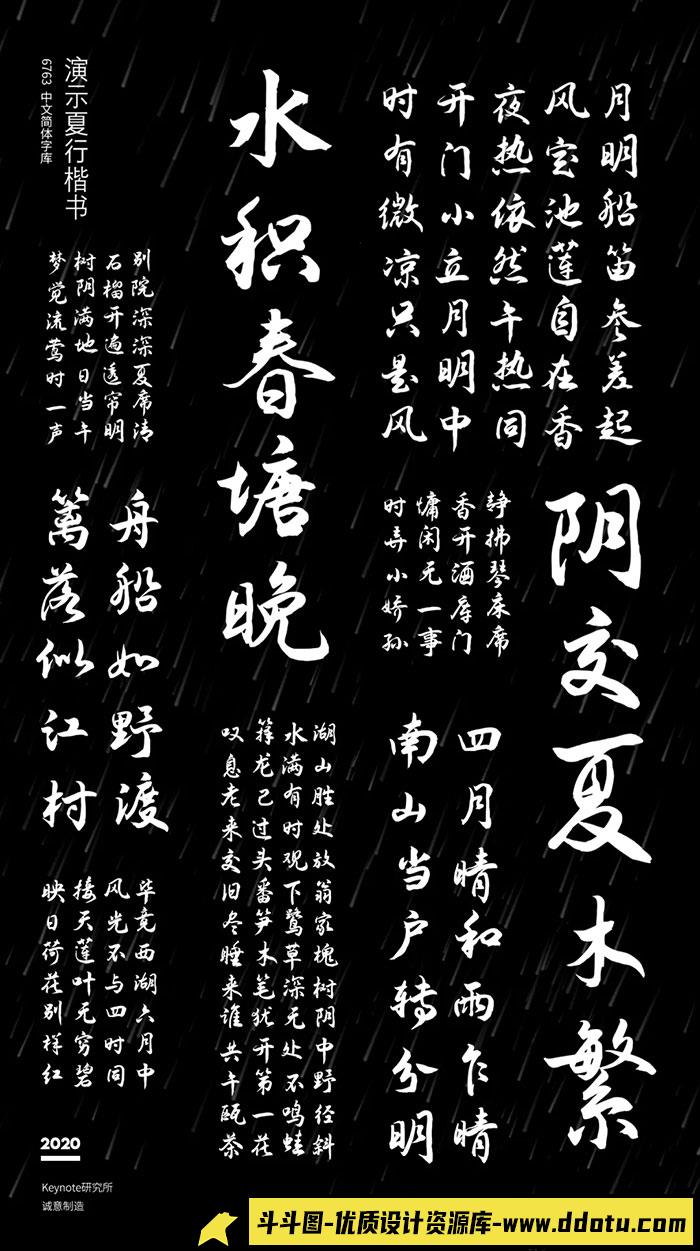 月明船笛参差起
风定池莲自在香
夜热依然午热同
开门小立月明中
时有微凉只是风
阴交夏木繁
水积春塘晚
静拂琴床席
香开酒库门
慵闲无一事
时弄小娇孙
四月晴和雨乍晴
南山当户转分明
湖山胜处放翁家槐树阴中野径斜
水满有时观下鹭草深无处不鸣蛙
箨龙已过头番笋木笔犹开第一花
叹息老来交旧尽睡来谁共午瓯茶
演示夏行楷书
6763 中文简体字库
别院深深夏席清
石榴开遍透帘明
树阴满地日当午
梦觉流莺时一声
舟船如野渡
篱落似江村
毕竟西湖六月中
风光不与四时同
接天莲叶无穷碧
映日荷花别样红
2020
Keynote研究所
诚意制造
斗斗图-优质设计资源库-www.ddotu.com